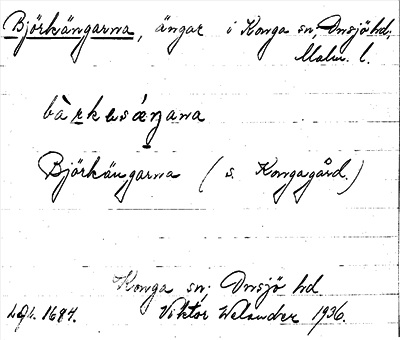 Björkängarna, ängar i Konga sn, Onsjö hd,
Malm. l.
Björkängarna (s. Kongagård.)
Konga sn; Onsjö hd
1684. Viktor Welander 1936.